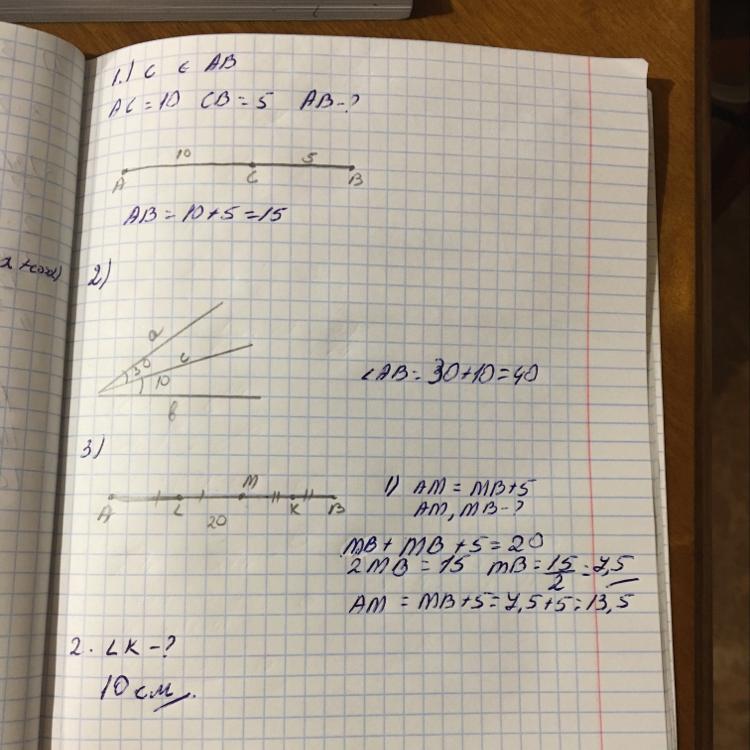 1.) C ∈ AB
AC = 10 CB = 5 AB - ?
10 5
A C B
AB = 10 + 5 = 15
2)
a
30 c
10
b
∠AB = 30 + 10 = 40
3)
M
A L K B
20
1) AM = MB + 5
AM, MB - ?
MB + MB + 5 = 20
2MB = 15 MB = 15/2 = 7,5
AM = MB + 5 = 7,5 + 5 = 13,5
2. LK - ?
10 см.